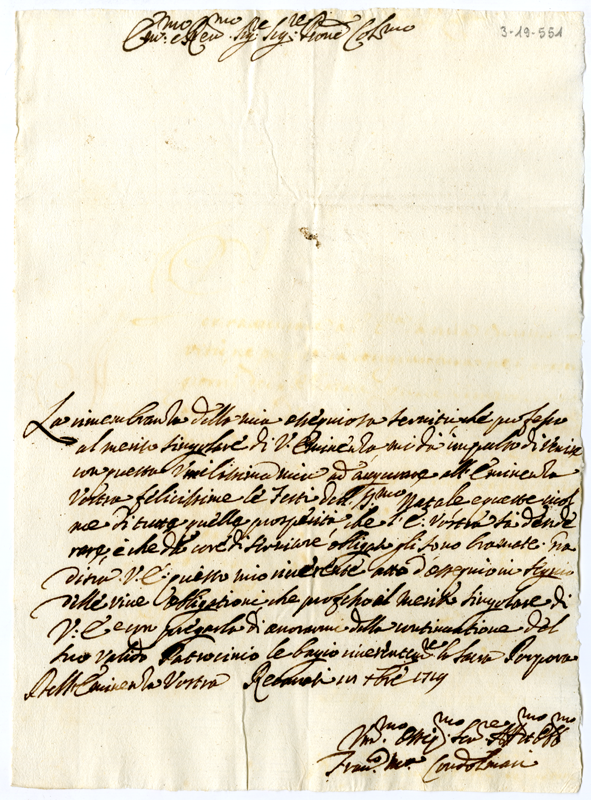 Em.mo e Rev.mo Sig.re Sig.re Pron.e Col.mo
3-19-551
La rimembranza della mia ossequiosa servitù che professo
al merito singolare di V. Eminenza mi dà impulso di venire
con questa umilissima mia ad augurare all'Eminenza
Vostra felicissime le feste del S.mo Natale e queste
me di tutte quelle prosperità che l'E. Vostra sà deside
rare, e che da core di servitore obligato gli sono bramate. Gra
disca V. E. questo mio riverente atto d'ossequio in segno
delle vive obligationi che professo al merito singolare di
V. E. e con pregarla di onorarmi della continuatione del
suo valido Patrocinio le bagio riverentem.te la Sacra Porpora
Dell'Eminenza Vostra Recanati xbre 1719
Um.mo Osseq.mo Ser.re
Fran.co M.a Condolmari